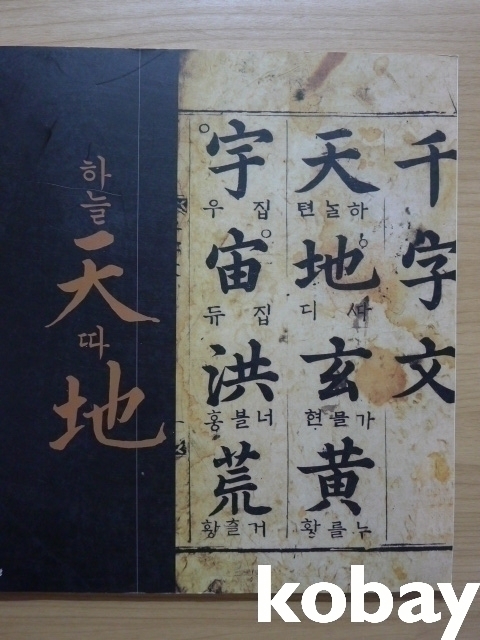 하늘
天
따
地
千字文
天
하ᄂᆞᆯ텬
地
ᄯᅡ디
玄
가믈현
黄
누를황
宇
집우
宙
집듀
洪
너블홍
荒
거츨황
kobay